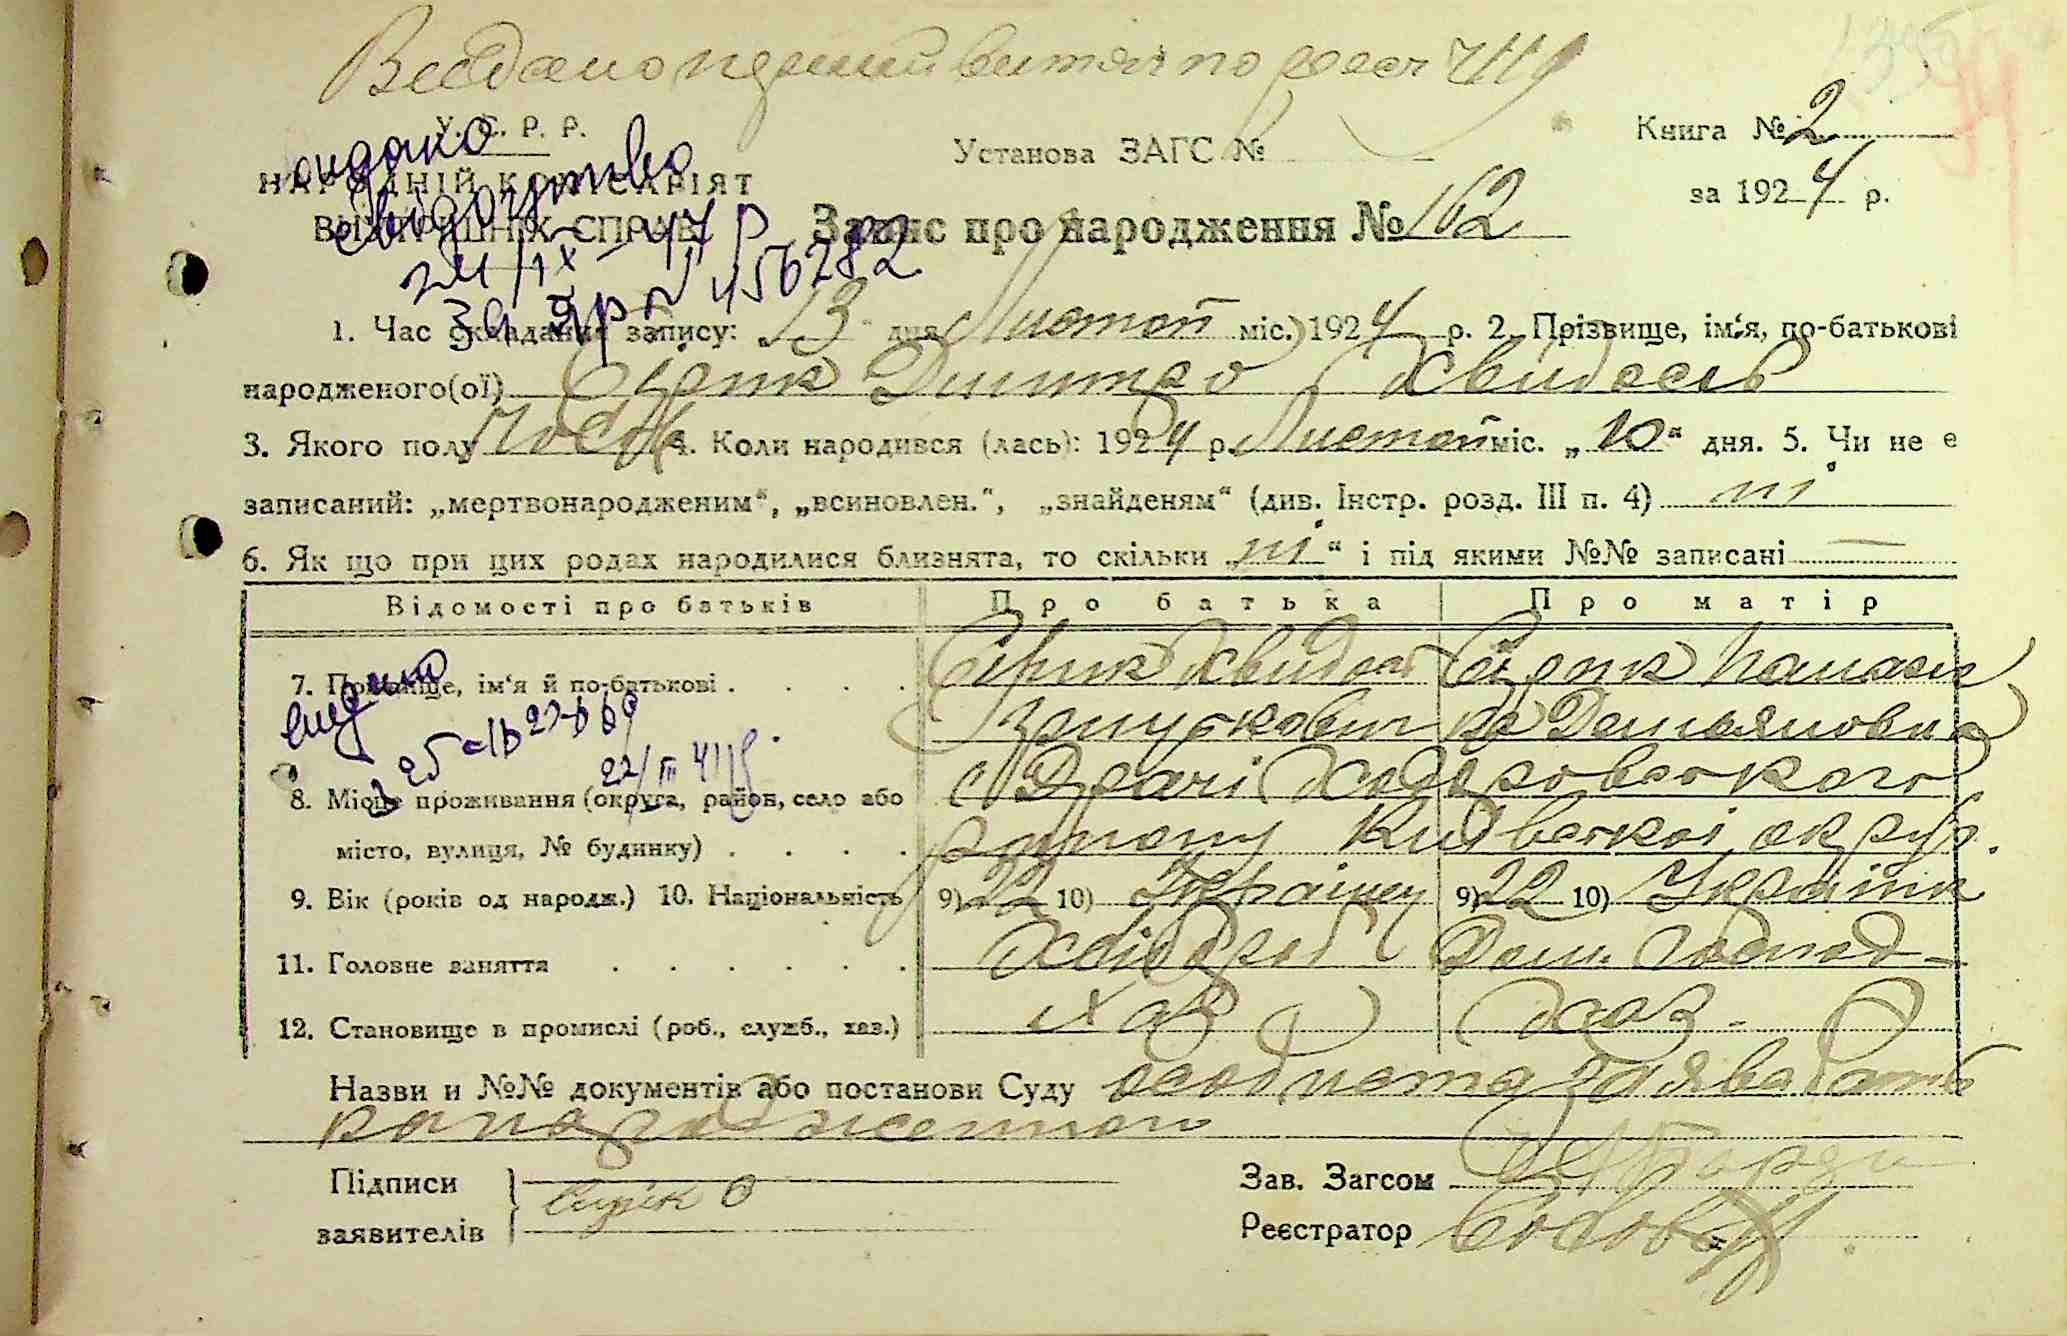 Видано повний витяг по реєстр 4119
У. С. Р. Р.
НАРОДНІЙ КОМІСАРІЯТ
ВНУТРІШНІХ СПРАВ
Установа ЗАГС №
Книга № 2
за 1924 р.
видано
свідоцтво
24/IX-47 р
456282
Запис про народження № 162
1. Час складання запису: „13“ дня Листоп міс. 1924 р. 2. Прізвище, ім‘я, по-батькові
народженого(ої) Сірик Дмитро Хвидось
3. Якого полу 4. Коли народився (лась): 1924 р. Листоп міс. „10“ дня. 5. Чи не є
записаний: „мертвонародженим“, „всиновлен.“, „знайденям“ (див. Інстр. розд. III п. 4) ні
6. Як що при цих родах народилися близнята, то скільки „ні“ і під якими №№ записані —
Відомості про батьків Про батька Про матір
7. Прізвище, ім‘я й по-батькові Сірик Хвидос Сірик Панаск
Демьяновна
8. Місце проживання (округа, район, село або
місто, вулиця, № будинку) району Київської округ.
9. Вік (років од народж.) 10. Національність 9) 22 10) Українец 9) 22 10) Українк
11. Головне заняття Хлібороб Дом. господ-
12. Становище в промислі (роб., служб., хаз.) хаз хаз.
Назви и №№ документів або постанови Суду особиста заява бать
ка народженого
Підписи
заявителів Сирік
Зав. Загсом
Реєстратор